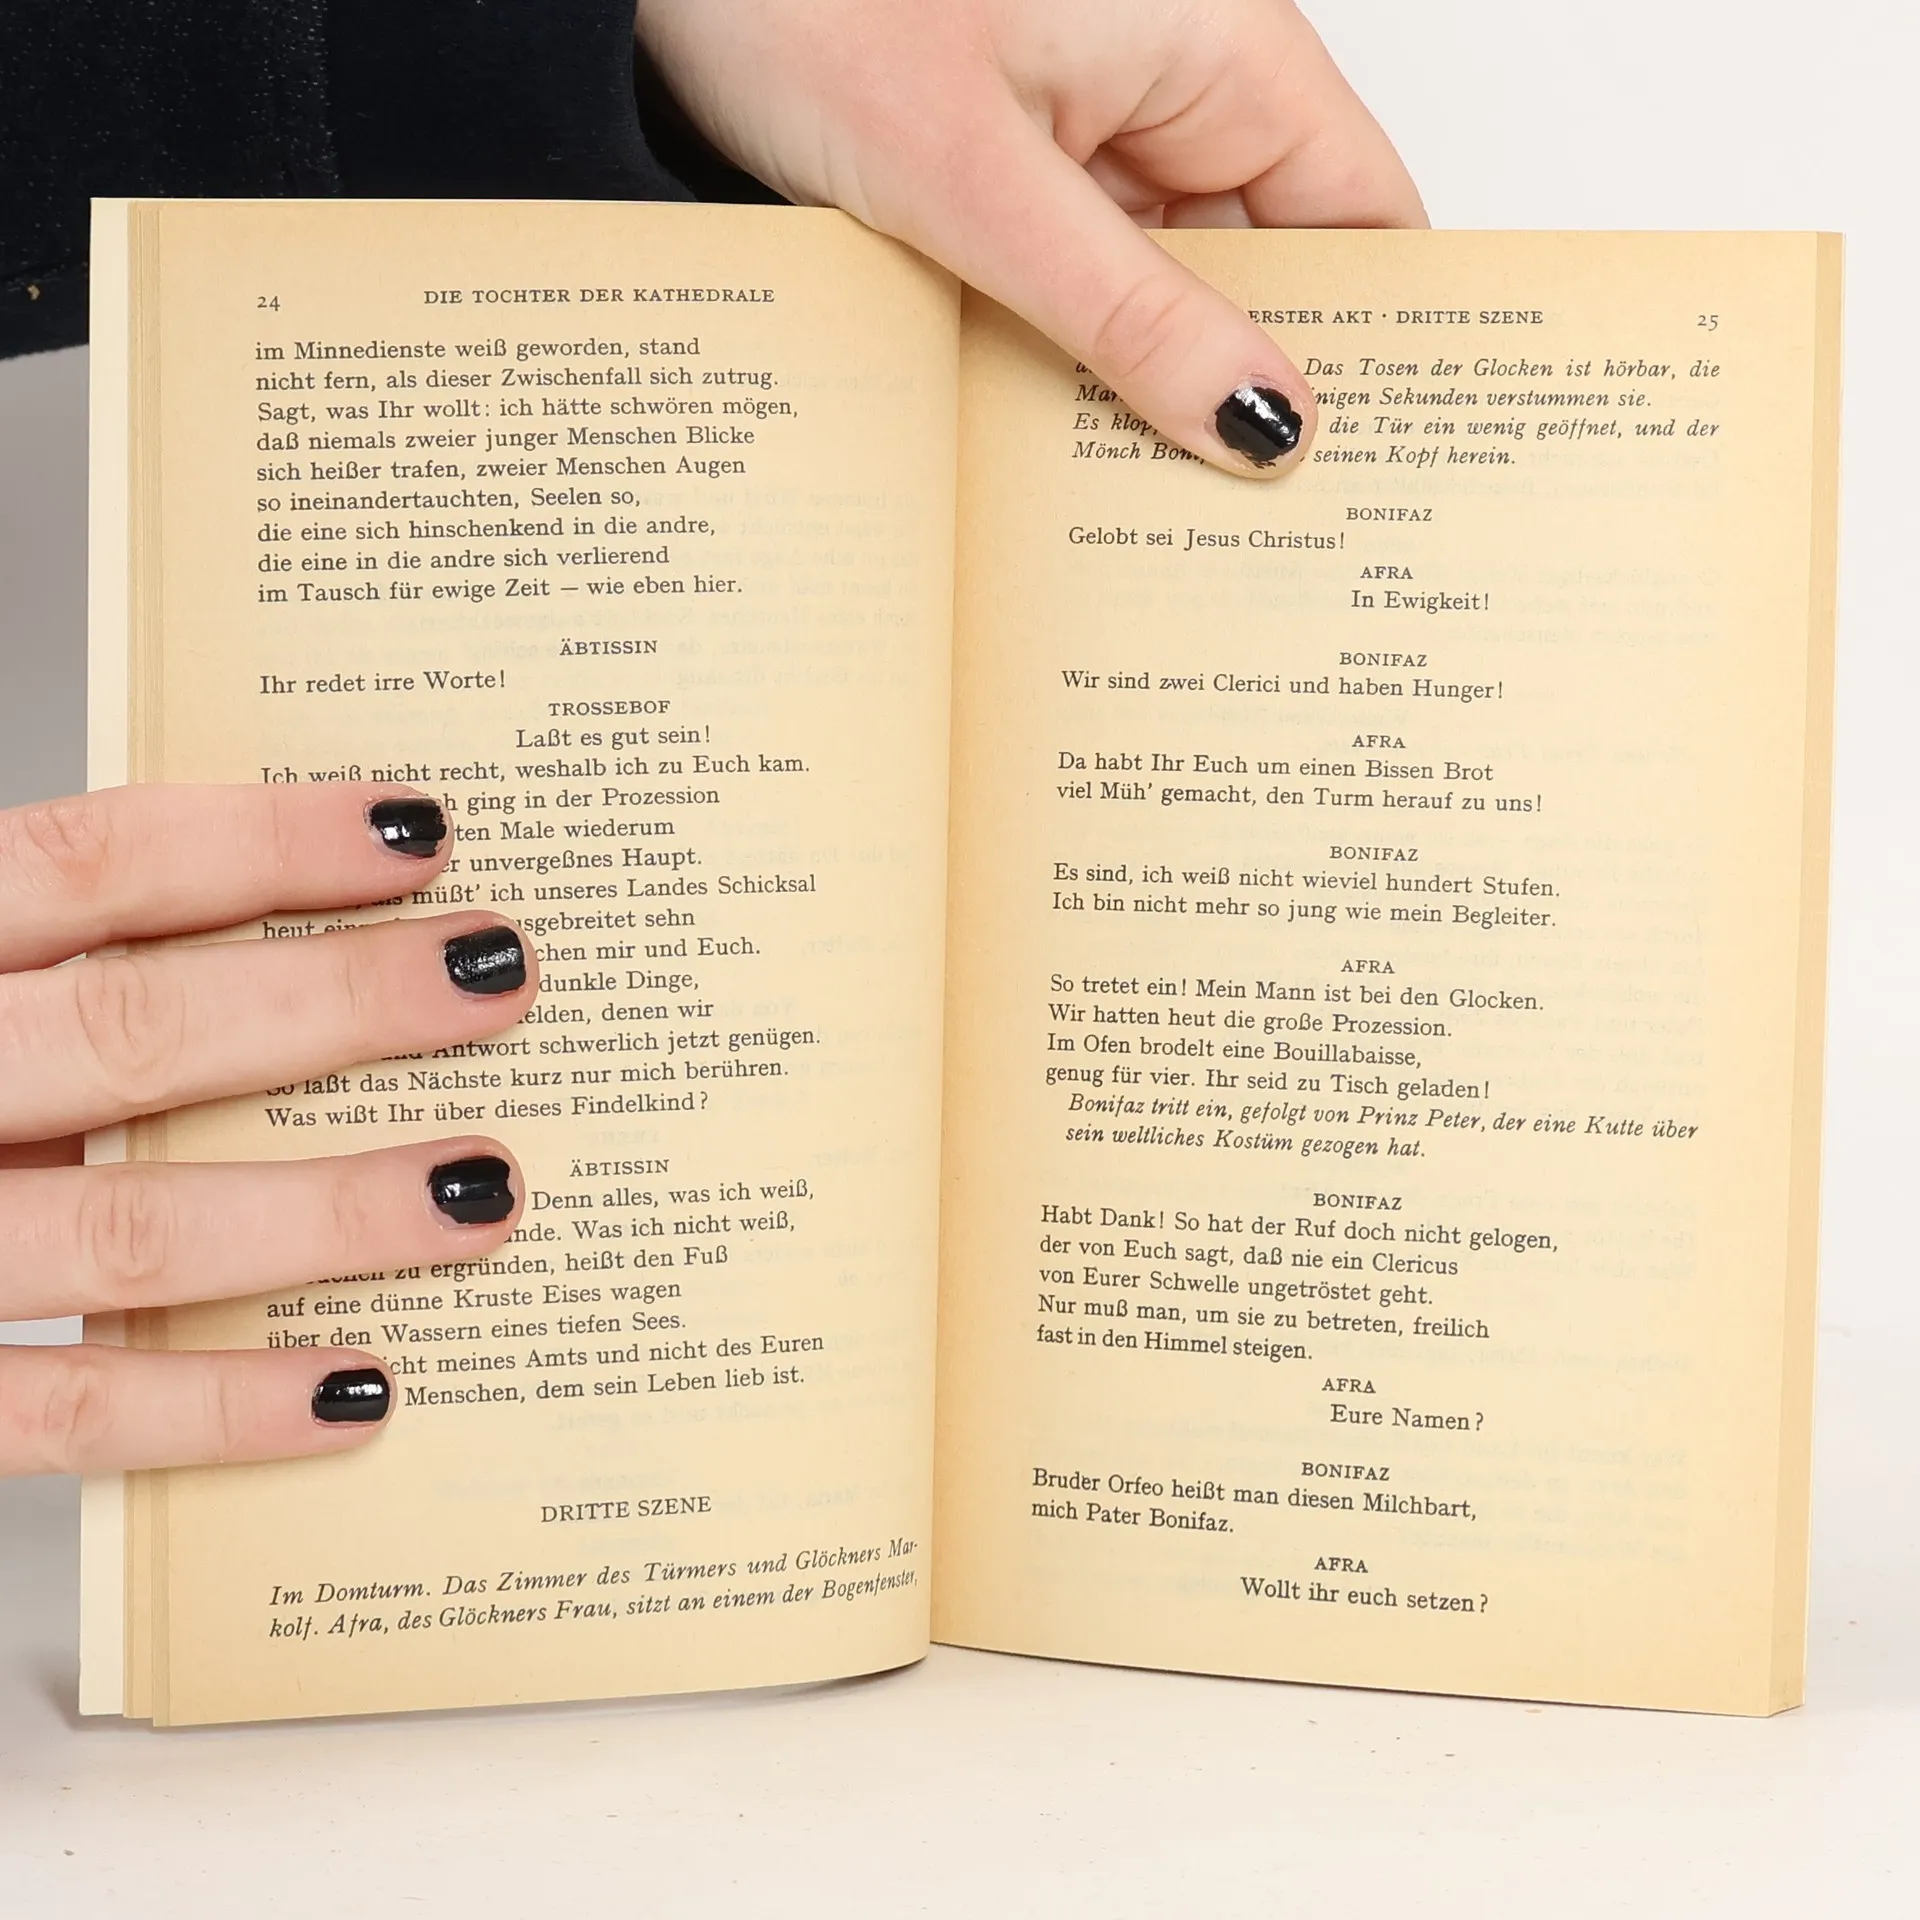 24
DIE TOCHTER DER KATHEDRALE
im Minnedienste weiß geworden, stand
nicht fern, als dieser Zwischenfall sich zutrug.
Sagt, was Ihr wollt: ich hätte schwören mögen,
daß niemals zweier junger Menschen Blicke
sich heißer trafen, zweier Menschen Augen
so ineinandertauchten, Seelen so,
die eine sich hinschenkend in die andre,
die eine in die andre sich verlierend
im Tausch für ewige Zeit — wie eben hier.
ÄBTISSIN
Ihr redet irre Worte!
TROSSEBOF
Laßt es gut sein!
Ich weiß nicht recht, weshalb ich zu Euch kam.
ging in der Prozession
Male wiederum
unvergeßnes Haupt.
müßt' ich unseres Landes Schicksal
heut sehn
mir und Euch.
dunkle Dinge,
denen wir
Antwort schwerlich jetzt genügen.
So laßt das Nächste kurz nur mich berühren.
Was wißt Ihr über dieses Findelkind?
ÄBTISSIN
Denn alles, was ich weiß,
Was ich nicht weiß,
zu ergründen, heißt den Fuß
auf eine dünne Kruste Eises wagen
über den Wassern eines tiefen Sees.
meines Amts und nicht des Euren
Menschen, dem sein Leben lieb ist.
DRITTE SZENE
Im Domturm. Das Zimmer des Türmers und Glöckners Mar-
kolf. Afra, des Glöckners Frau, sitzt an einem der Bogenfenster,
ERSTER AKT · DRITTE SZENE
25
Das Tosen der Glocken ist hörbar, die
Sekunden verstummen sie.
Es die Tür ein wenig geöffnet, und der
Mönch seinen Kopf herein.
BONIFAZ
Gelobt sei Jesus Christus!
AFRA
In Ewigkeit!
BONIFAZ
Wir sind zwei Clerici und haben Hunger!
AFRA
Da habt Ihr Euch um einen Bissen Brot
viel Müh' gemacht, den Turm herauf zu uns!
BONIFAZ
Es sind, ich weiß nicht wieviel hundert Stufen.
Ich bin nicht mehr so jung wie mein Begleiter.
AFRA
So tretet ein! Mein Mann ist bei den Glocken.
Wir hatten heut die große Prozession.
Im Ofen brodelt eine Bouillabaisse,
genug für vier. Ihr seid zu Tisch geladen!
Bonifaz tritt ein, gefolgt von Prinz Peter, der eine Kutte über
sein weltliches Kostüm gezogen hat.
BONIFAZ
Habt Dank! So hat der Ruf doch nicht gelogen,
der von Euch sagt, daß nie ein Clericus
von Eurer Schwelle ungetröstet geht.
Nur muß man, um sie zu betreten, freilich
fast in den Himmel steigen.
AFRA
Eure Namen?
BONIFAZ
Bruder Orfeo heißt man diesen Milchbart,
mich Pater Bonifaz.
AFRA
Wollt ihr euch setzen?